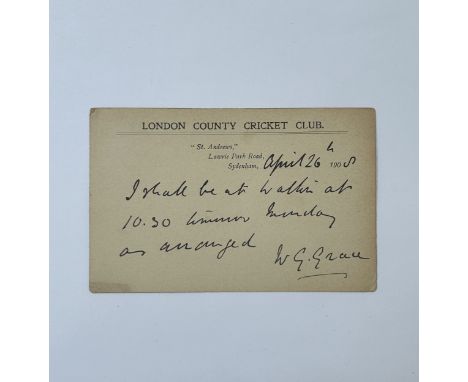 LONDON COUNTY CRICKET CLUB.
"St. Andrews,"
Lawrie Park Road,
Sydenham, April 26th 190
I shall be at at
10.30 Monday
as arranged
W G. Grace